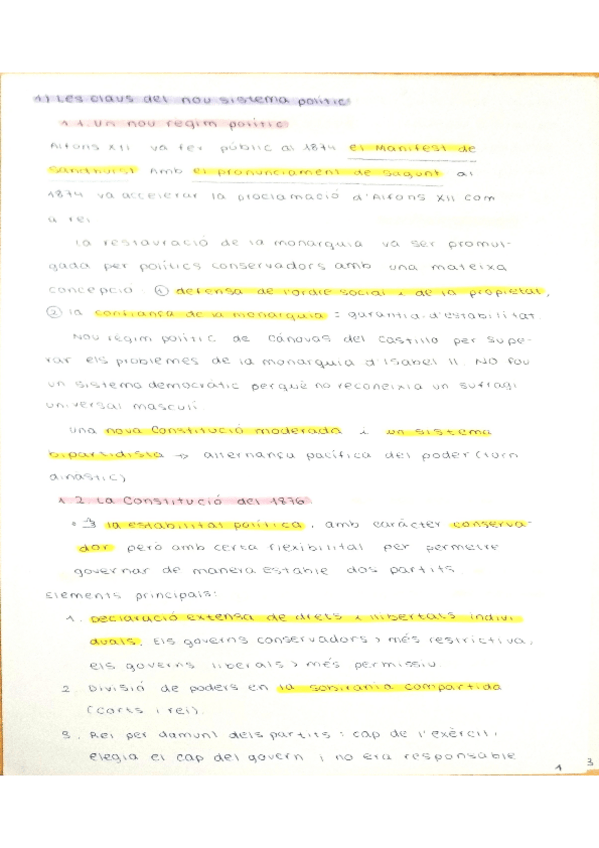 1) Les claus del nou sistema polític
1.1. Un nou regim polític
Alfons XII va fer públic al 1874 el Manifest de
Sandhurst Amb el pronunciament de Sagunt al
1874 va accelerar la proclamació d'Alfons XII com
a rei
La restauració de la monarquia va ser promul-
gada per polítics conservadors amb una mateixa
concepció: ① defensa de l'ordre social i de la propietat,
② la confiança de la monarquia = garantia d'estabilitat.
Nou règim polític de Cánovas del Castillo per supe-
rar els problemes de la monarquia d'Isabel II. NO fou
un sistema democràtic perquè no reconeixia un sufragi
universal masculí.
Una nova Constitució moderada i un sistema
bipartidista → alternança pacífica del poder (torn
dinàstic)
1.2. La Constitució del 1876
la estabilitat política, amb caràcter conserva-
dor però amb certa flexibilitat per permetre
governar de manera estable dos partits.
Elements principals:
1. Declaració extensa de drets i llibertats indivi-
duals. Els governs conservadors > més restrictiva,
els governs liberals > més permissiu.
2. Divisió de poders en la sobirania compartida
(corts i rei).
3. Rei per damunt dels partits: cap de l'exèrcit,
elegia el cap del govern i no era responsable
1 3